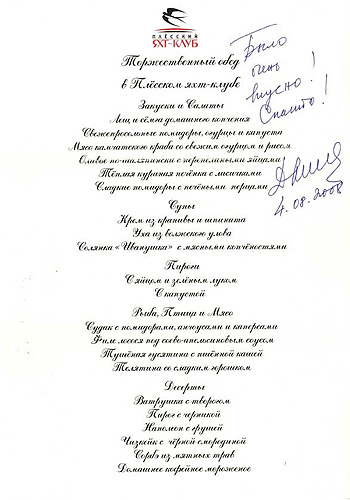 ПЛЁССКИЙ
ЯХТ-КЛУБ
Торжественный обед
в Плёсском яхт-клубе
Было
очень
вкусно!
Спасибо!
4.08.2008
Закуски и Салаты
Лещ и сёмга домашнего копчения
Свежепросольные помидоры, огурцы и капуста
Мясо камчатского краба со свежим огурцом и рисом
Оливье по-шаляпински с перепелиными яйцами
Тёплая куриная печёнка с лисичками
Сладкие помидоры с печёными перцами
Супы
Крем из крапивы и шпината
Уха из волжского улова
Солянка «Иванушка» с мясными копчёностями
Пироги
С яйцом и зелёным луком
С капустой
Рыба, Птица и Мясо
Судак с помидорами, анчоусами и каперсами
Филе лосося под соево-апельсиновым соусом
Тушёная гусятина с пшённой кашей
Телятина со сладким горошком
Десерты
Ватрушка с творогом
Пирог с черникой
Наполеон с грушей
Чизкейк с чёрной смородиной
Сорбэ из мятных трав
Домашнее кофейное мороженое